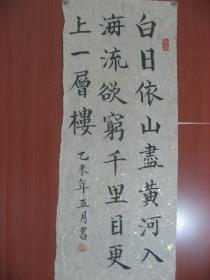 白日依山盡黄河入
海流欲窮千里目更
上一層樓
乙未年五月書